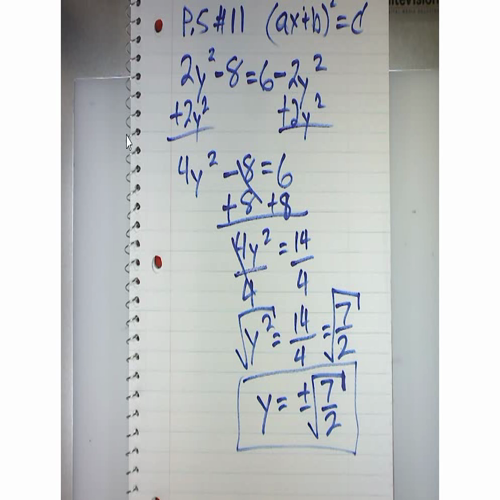 P.S #11 (ax+b)² = d
2y² - 8 = 6 - 2y²
+2y² +2y²
4y² - 8 = 6
+8 +8
4y²/4 = 14/4
√y² = 14/4 = √7/2
y = ±√7/2